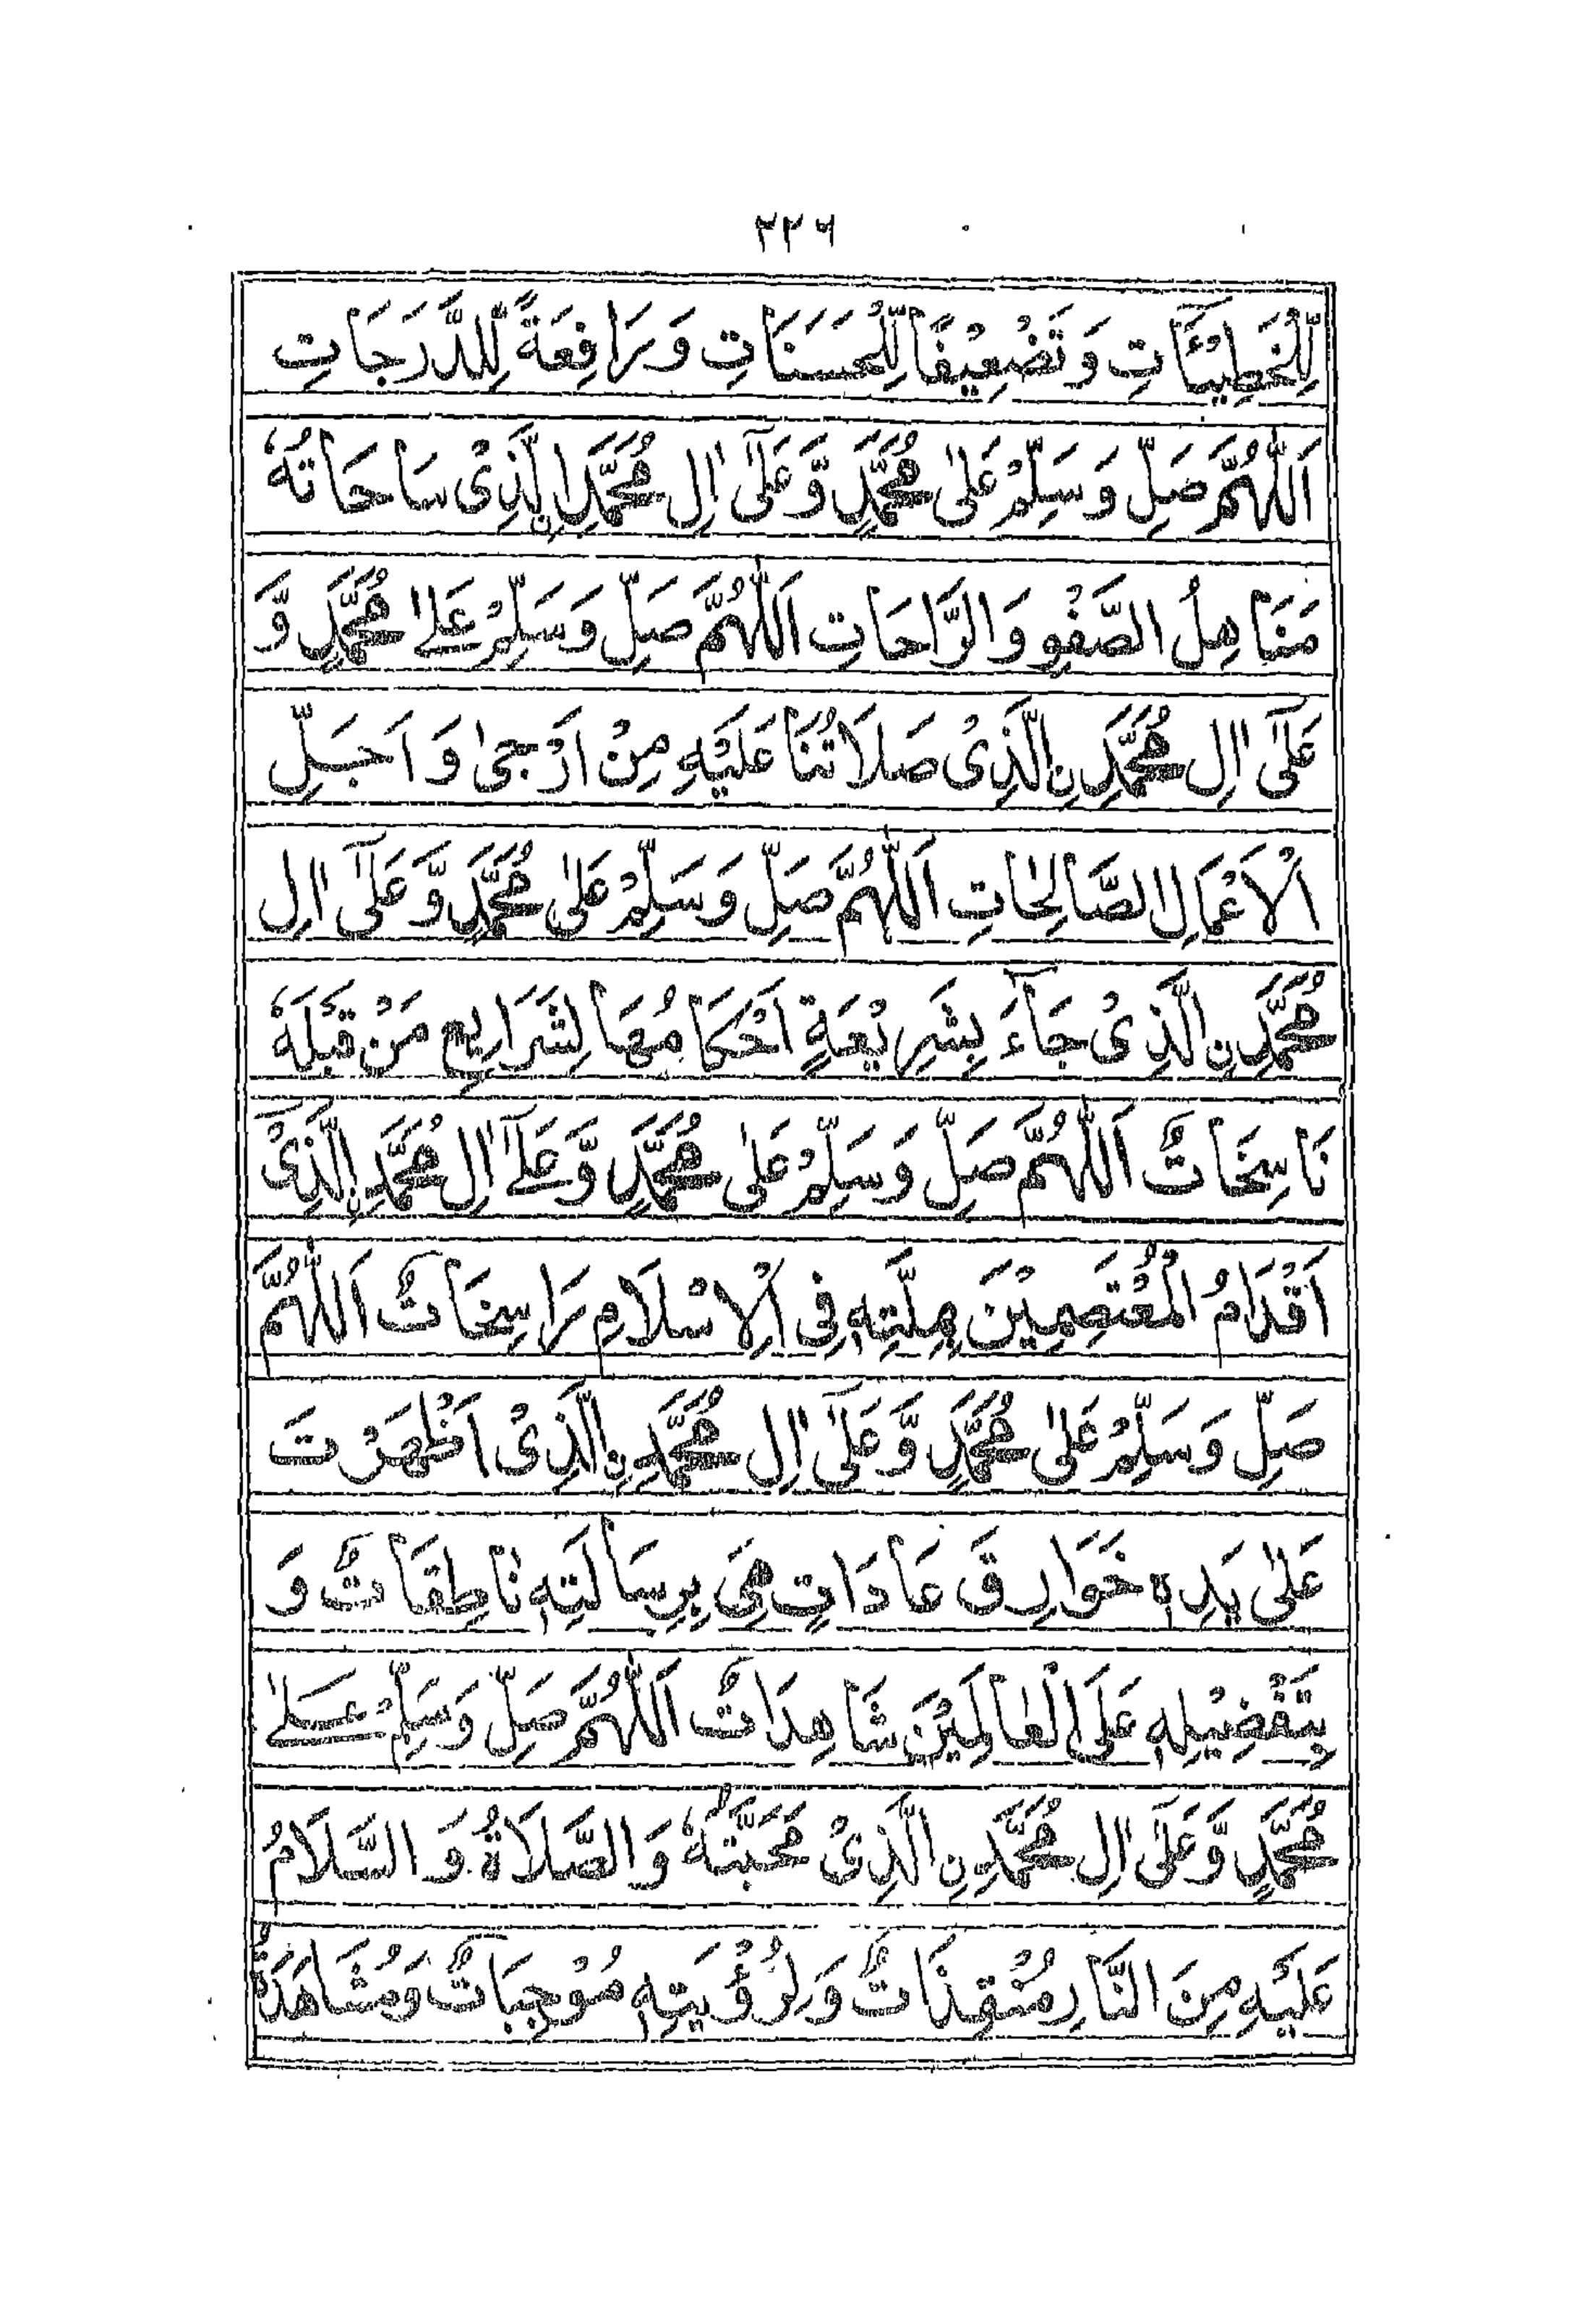 ۲۲۶
لِّلْخَطِيْئَاتِ وَ تَضْعِيْفًا لِّلْحَسَنَاتِ وَ رَافِعَةً لِّلدَّرَجَاتِ
اَللّٰهُمَّ صَلِّ وَ سَلِّمْ عَلٰى مُحَمَّدٍ وَّ عَلٰٓى اٰلِ مُحَمَّدِ اِ۟لَّذِىْ سَاحَاتُهٗ
مَنَاهِلُ الصَّفْوِ وَ الرَّاحَاتِ اَللّٰهُمَّ صَلِّ وَ سَلِّمْ عَلٰى مُحَمَّدٍ وَّ
عَلٰٓى اٰلِ مُحَمَّدِ نِ الَّذِىْ صَلَاتُنَا عَلَيْهِ مِنْ اَرْجٰى وَ اَجَلِّ
الْاَعْمَالِ الصَّالِحَاتِ اَللّٰهُمَّ صَلِّ وَ سَلِّمْ عَلٰى مُحَمَّدٍ وَّ عَلٰٓى اٰلِ
مُحَمَّدِ نِ الَّذِىْ جَآءَ بِشَرِيْعَةٍ اَحْكَامُهَا لِشَرَايِعِ مَنْ قَبْلَهٗ
نَاسِخَاتٌ اَللّٰهُمَّ صَلِّ وَ سَلِّمْ عَلٰى مُحَمَّدٍ وَّ عَلٰٓى اٰلِ مُحَمَّدِ نِ الَّذِىْ
اَقْدَامُ الْمُعْتَصِمِيْنَ بِمِلَّتِهٖ فِى الْاِسْلَامِ رَاسِخَاتٌ اَللّٰهُمَّ
صَلِّ وَ سَلِّمْ عَلٰى مُحَمَّدٍ وَّ عَلٰٓى اٰلِ مُحَمَّدِ نِ الَّذِىْ اَظْهَرْتَ
عَلٰى يَدِهٖ خَوَارِقَ عَادَاتٍ هِىَ بِرِسَالَتِهٖ نَاطِقَاتٌ وَ
بِتَفْضِيْلِهٖ عَلَى الْعَالَمِيْنَ شَاهِدَاتٌ اَللّٰهُمَّ صَلِّ وَ سَلِّمْ عَلٰى
مُحَمَّدٍ وَّ عَلٰٓى اٰلِ مُحَمَّدِ نِ الَّذِىْ مَحَبَّتُهٗ وَ الصَّلَاةُ وَ السَّلَامُ
عَلَيْهِ مِنَ النَّارِ مُنْقِذَاتٌ وَ لِرُؤْيَتِهٖ مُوْجِبَاتٌ وَ مُشَاهَدَةُ